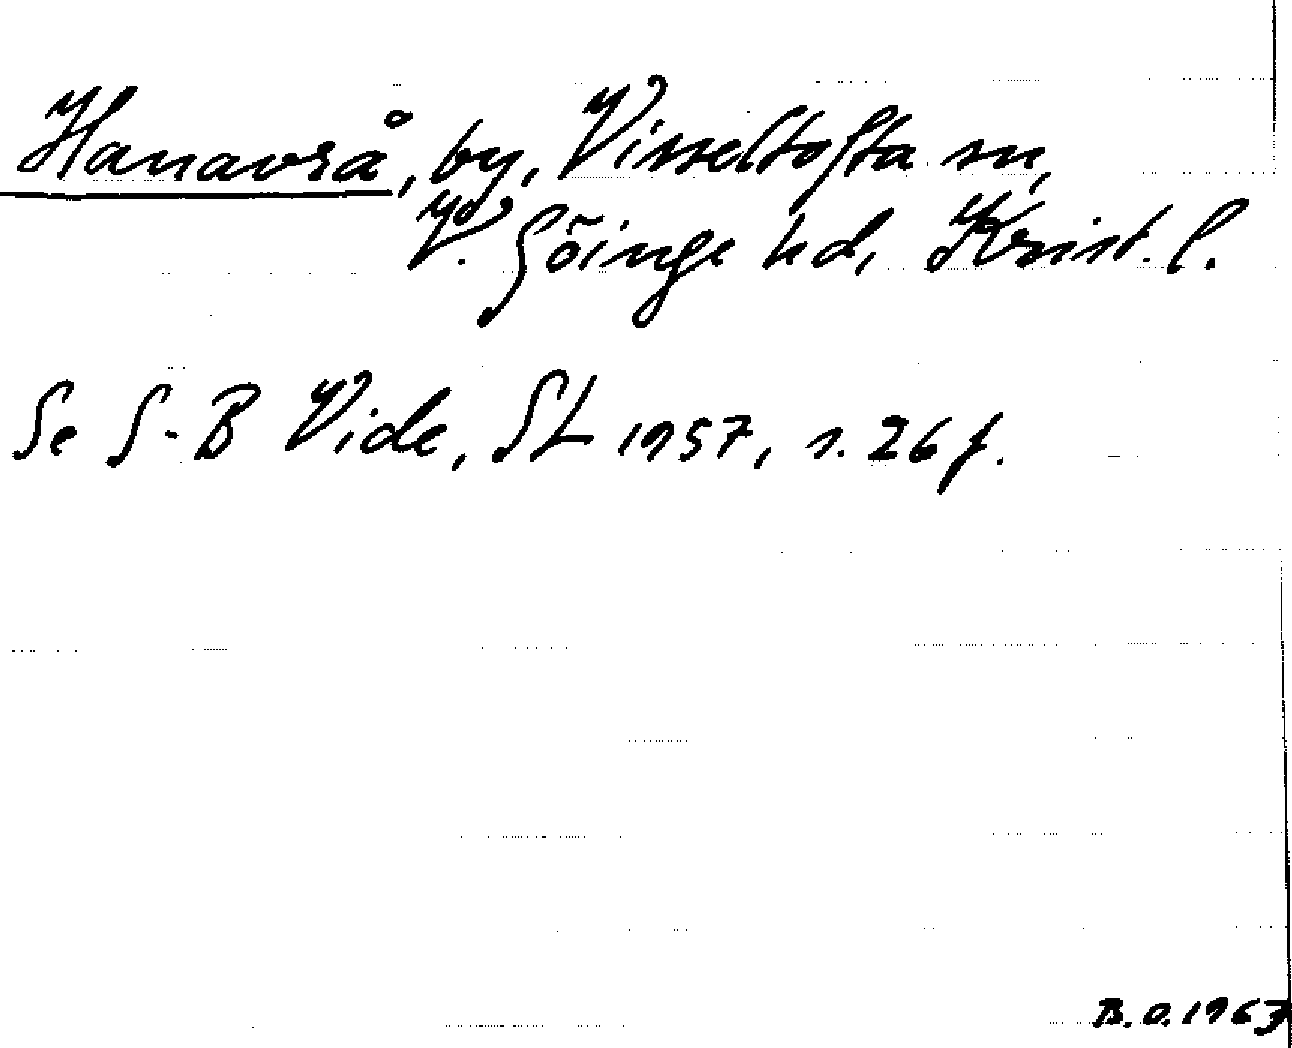 Hanavrå, by, Visseltofta sn,
V. Göinge hd, Krist. l.
Se S-B Vide, SL 1957, s. 26 f.
B.O. 1963